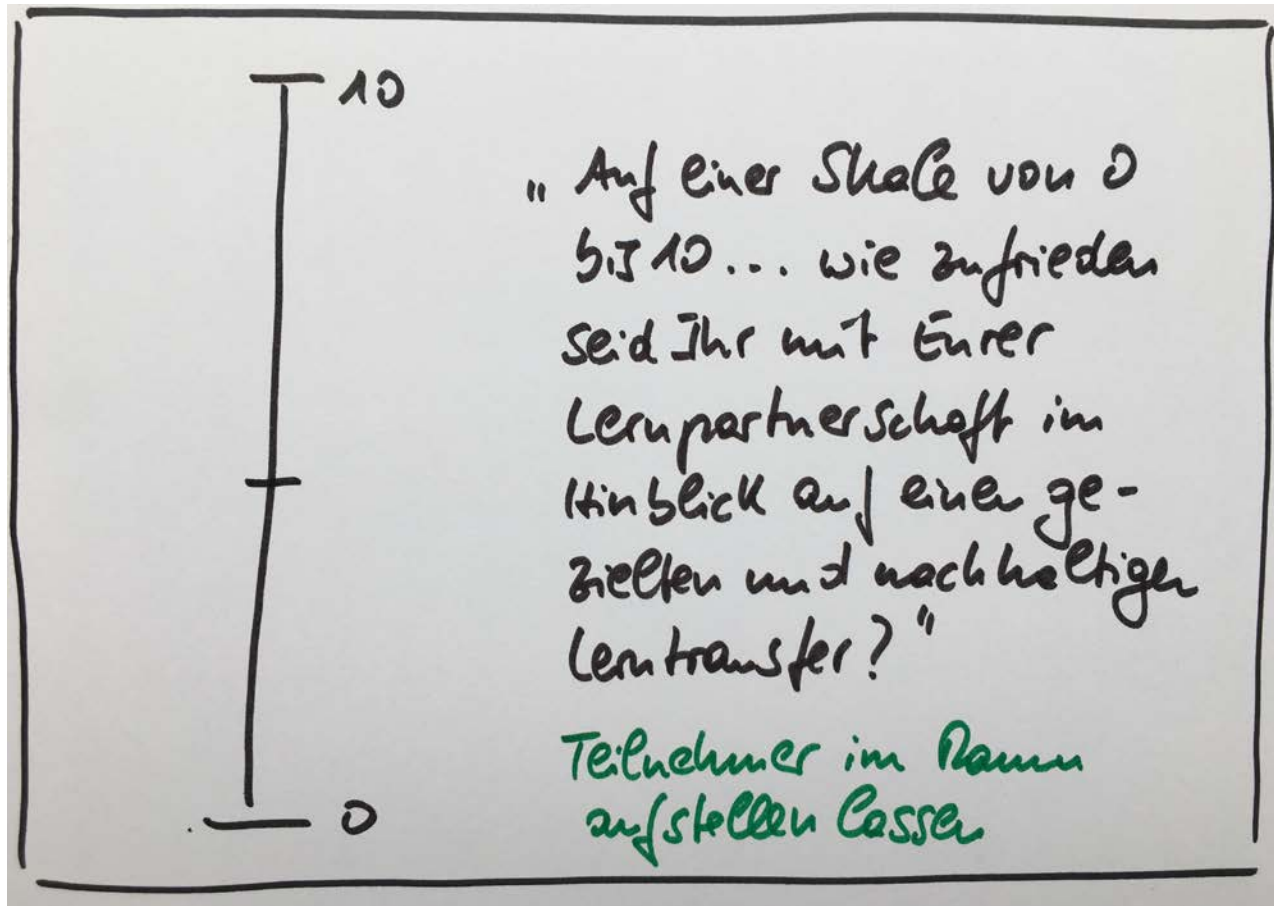 10
„Auf einer Skala von 0
bis 10... wie zufrieden
seid Ihr mit Eurer
Lernpartnerschaft im
Hinblick auf einen ge-
zielten und nachhaltigen
Lerntransfer?"
Teilnehmer im Raum
aufstellen lassen
0